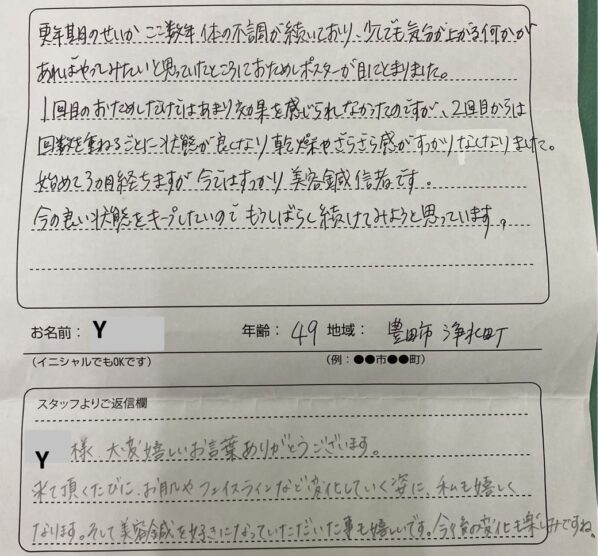 更年期のせいか ここ数年 体の不調が続いており、少しでも気分が上がる何かが
あればやってみたいと思っていたところにおためしポスターが目にとまりました。
1回目のおためしだけではあまり効果を感じられなかったのですが、2回目からは
回数を重ねるごとに状態が良くなり 乾燥やざらざら感がすっかりなくなりました。
始めて3カ月経ちますが 今ではすっかり 美容鍼信者です。
今の良い状態をキープしたいので もうしばらく続けてみようと思っています。
お名前： Y 年齢： 49 地域： 豊田市 浄水町
(イニシャルでもOKです) (例：●●市●●町)
スタッフよりご返信欄
Y 様、大変嬉しいお言葉ありがとうございます。
来て頂くたびに、お肌や フェイスラインなど変化していく姿に、私も嬉しく
なります。そして美容鍼を好きになっていただいた事も嬉しいです。今後の変化も楽しみですね。